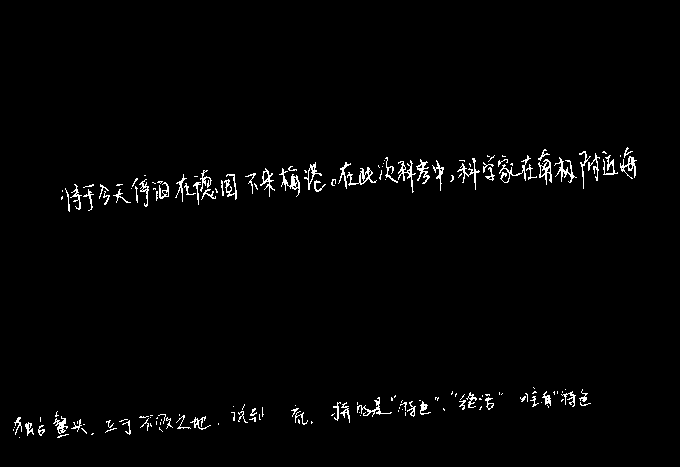 将于今天停泊在德国不来梅港。在此次科考中,科学家在南极附近海
独占鳌头、立于不败之地,说到 底,拼的是“特色”、“绝活”唯有“特色